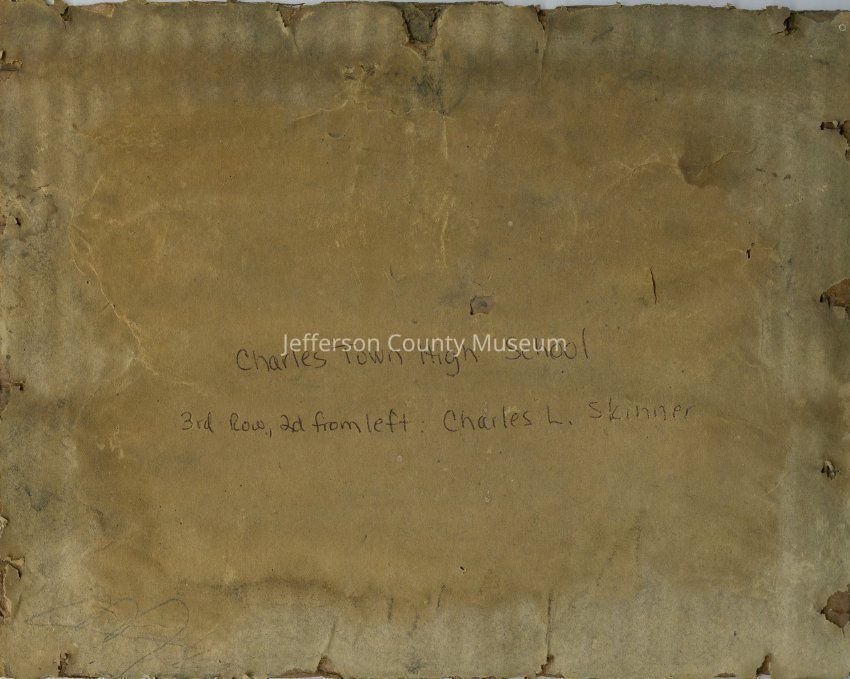 Jefferson County Museum
Charles Town High School
3rd Row, 2d from left: Charles L. Skinner